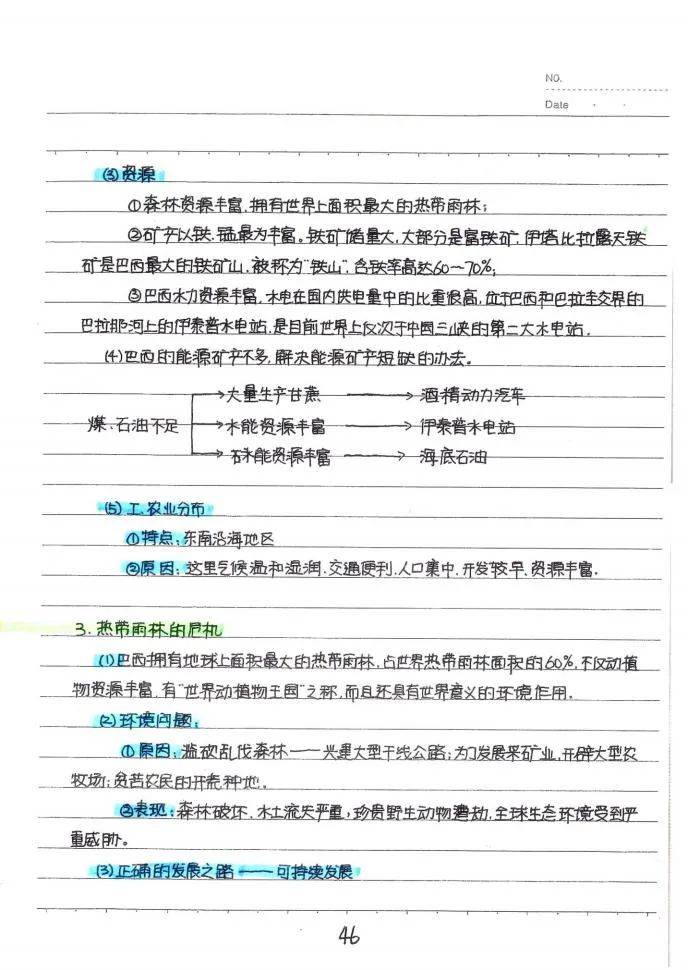 NO.
Date
(3) 资源
①森林资源丰富,拥有世界上面积最大的热带雨林;
②矿产以铁、锰最为丰富。铁矿储量大,大部分是富铁矿.伊塔比拉露天铁
矿是巴西最大的铁矿山,被称为"铁山",含铁率高达60~70%;
③巴西水力资源丰富,水电在国内供电量中的比重很高,位于巴西和巴拉圭交界的
巴拉那河上的伊泰普水电站,是目前世界上仅次于中国三峡的第二大水电站.
(4)巴西的能源矿产不多,解决能源矿产短缺的办法。
→大量生产甘蔗 → 酒精动力汽车
煤、石油不足 →水能资源丰富 → 伊泰普水电站
→ 资源丰富 → 海底石油
(5) 工、农业分布
①特点:东南沿海地区
②原因:这里气候温和湿润.交通便利.人口集中.开发较早.资源丰富.
3.热带雨林的危机
(1)巴西拥有地球上面积最大的热带雨林,占世界热带雨林面积的60%,不仅动植
物资源丰富.有"世界动植物王国"之称,而且还具有世界意义的环境作用.
(2)环境问题:
①原因:滥砍乱伐森林——兴建大型干线公路;为了发展采矿业,开辟大型农
牧场;贫苦农民的开荒种地.
②表现:森林破坏.水土流失严重;珍贵野生动物遭劫,全球生态环境受到严
重威胁。
(3)正确的发展之路——可持续发展
46